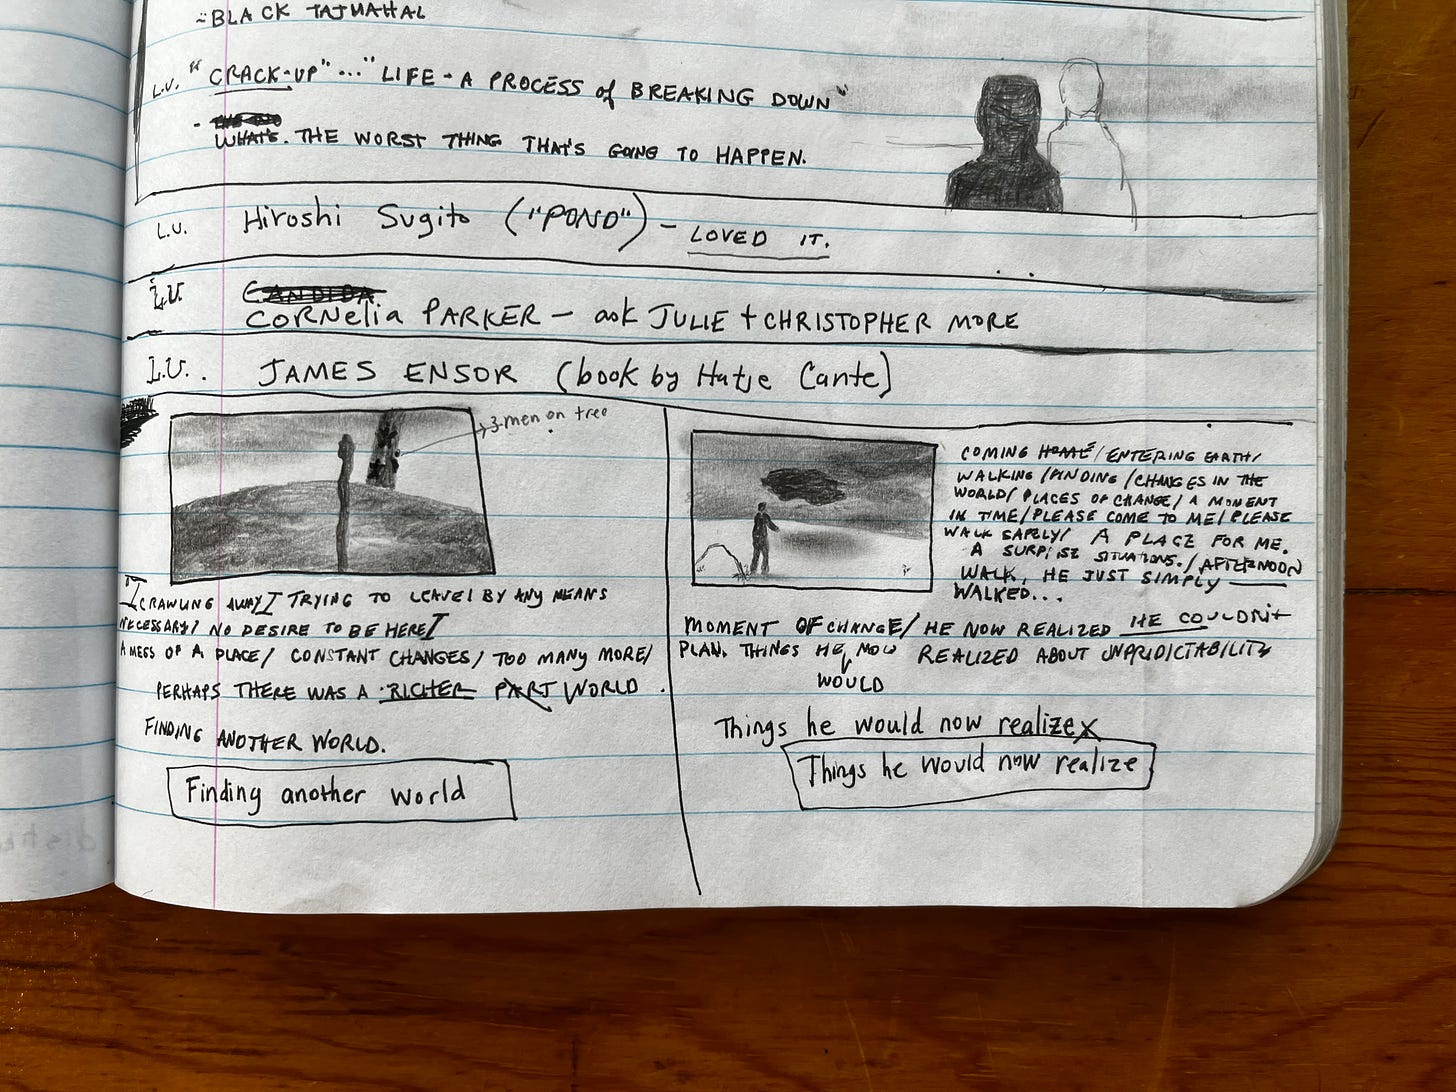 ~BLACK TAJMAHAL
L.U. "CRACK-UP"..."LIFE - A PROCESS of BREAKING DOWN"
- WHAT'S. THE WORST THING THAT'S GOING TO HAPPEN.
L.U. Hiroshi Sugito ("POND") - LOVED IT.
L.U. CANDIDA
CORNelia PARKER - ask JULIE + CHRISTOPHER MORE
L.U.. JAMES ENSOR (book by Hatje Cante)
3 men on tree
I CRAWLING AWAY I TRYING TO LEAVE/ BY ANY MEANS
NECESSARY/ NO DESIRE TO BE HERE I
A MESS OF A PLACE/ CONSTANT CHANGES/ TOO MANY MORE/
PERHAPS THERE WAS A RICHER PART WORLD.
FINDING ANOTHER WORLD.
Finding another world
COMING HOME/ENTERING EARTH/
WALKING/FINDING/CHANGES IN THE
WORLD/ PLACES OF CHANGE/ A MOMENT
IN TIME/PLEASE COME TO ME/PLEASE
WALK SAFELY/ A PLACE FOR ME.
A SURPRISE SITUATIONS./AFTERNOON
WALK, HE JUST SIMPLY
WALKED...
MOMENT OF CHANGE/ HE NOW REALIZED HE COULDN'T
PLAN. THINGS HE NOW REALIZED ABOUT UNPRIDICTABILITY
WOULD
Things he would now realize
Things he would now realize